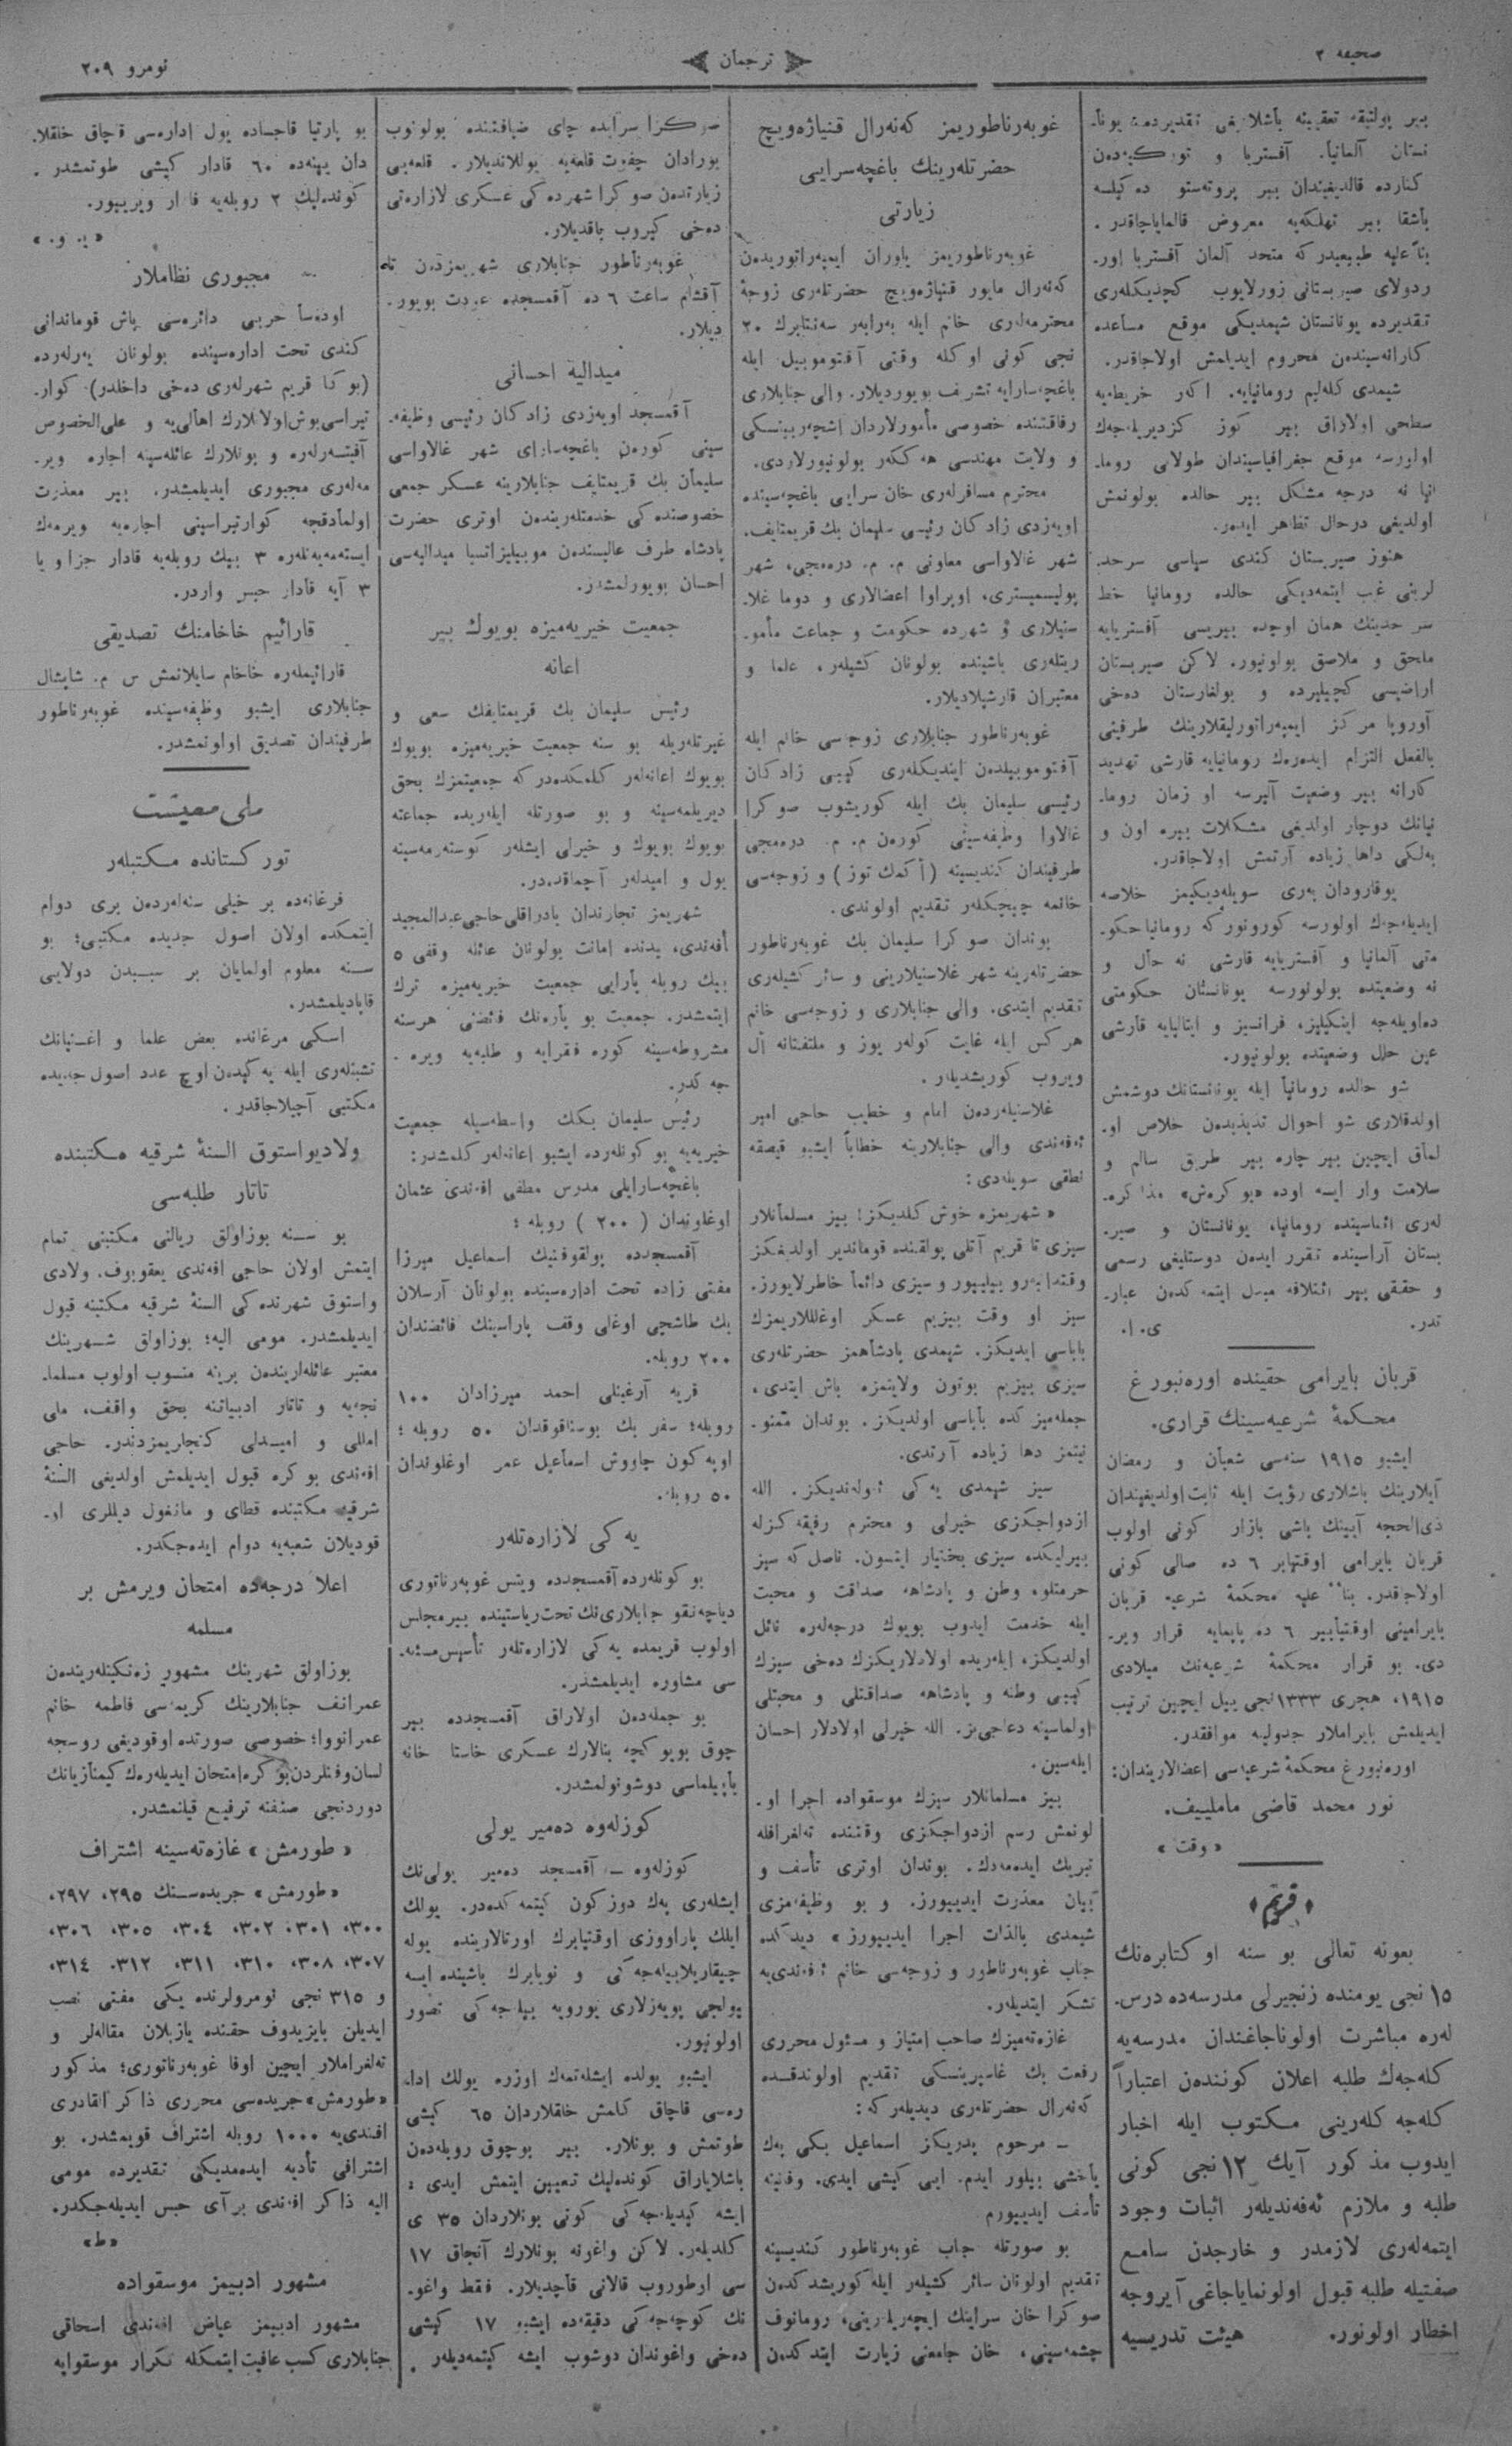 صحیفه ۲
ترجمان
نومرو ۲۰۹
بیر پولتیقه تعقیبینه باشلایغی تقدیرده یونا-
نستان آلمانیا، آفستریا و تورکیه‌دن
کنارده قالدیغیندان بیر پروته‌ستو ده‌کیلسه
باشقا بیر تهلکه‌یه معروض قالمایاجاقدر.
بناً علیه طبیعیدرکه متحد آلمان آفستریا اور-
دولای صیربستانی زورلایوب کچدیکلەری
تقدیرده یونانستان شیمدیکی موقع مساعده
کارانه‌سیندەن محروم ایدیلمش اولاجاقدر.
شیمدی کلەلیم رومانیایه. اکر خریطه‌یه
سطحی اولاراق بیر کوز کزدیریله‌جك
اولورسه موقع جغرافیاسیندان طولایی روما-
نیا نه درجه مشکل بیر حالده بولونمش
اولدیغی درحال تظاهر ایدەر.
هنوز صیربستان کندی سیاسی سرحد-
لرینی غیب ایتمەدیکی حالده رومانیا خط
سرحدینك همان اوچده بیریسی آفستریایه
ملحق و ملاصق بولونیور. لاکن صیربستان
اراضیسی کچیلیرده و بولغارستان دەخی
آوروپا مرکز ایمپەراتورلیقلارینك طرفینی
بالفعل التزام ایدەرەك رومانیایه قارشی تهدید
کارانه بیر وضعیت آلیرسه او زمان روما-
نیانك دوچار اولدیغی مشکلات بیره اون و
بەلکی داها زیاده آرتمش اولاجاقدر.
یوقارودان بەری سویلەدیکیمز خلاصه
ایدیلەجك اولورسه کورونورکه رومانیا حکو-
متی آلمانیا و آفستریایه قارشی نه حال و
نه وضعیتده بولونورسه یونانستان حکومتی
دەاویلەجه اینکیلیز، فرانسیز و ایتالیایه قارشی
عین حال وضعیتده بولونیور.
شو حالده رومانیا ایله یونانستانك دوشمش
اولدقلاری شو احوال تذبذبدەن خلاص او-
لماق ایچین بیر چاره بیر طریق سالم و
سلامت وار ایسه اوده «بوکرەش» مذاکره-
لەری اثناسینده رومانیا، یونانستان و صیر-
بستان آراسینده تقرر ایدەن دوستلیغی رسمی
و حقیقی بیر ائتلافه مبدل ایتمەکدەن عبار-
تدر. ی. ا.
قربان بایرامی حقینده اورەنبورغ
محکمهٔ شرعیه‌سینك قراری.
ایشبو ۱۹۱۵ سنەسی شعبان و رمضان
آیلارینك باشلاری رؤیت ایله ثابت اولدیغیندان
ذی‌الحجه آیینك باشی بازار کونی اولوب
قربان بایرامی اوقتیابر ٦ ده صالی کونی
اولاجقدر. بناءً علیه محکمهٔ شرعیه قربان
بایرامینی اوقتیابیر ٦ ده یاپمایه قرار ویر-
دی. بو قرار محکمهٔ شرعیه‌نك میلادی
۱۹۱۵، هجری ۱۳۳۳نجی ییل ایچین ترتیب
ایدیلمش بایراملار جدولیه موافقدر.
اورەنبورغ محکمهٔ شرعیه‌سی اعضالاریندان:
نور محمد قاضی ماملییف.
«وقت»
﴿قریم﴾
بعونه تعالی بو سنه اوکتابرەنك
۱۵ نجی یومنده زنجیرلی مدرسەده درس-
لەره مباشرت اولوناجاغندان مدرسه‌یه
کلەجەك طلبه اعلان کوننده‌ن اعتباراً
کلەجەکلەرینی مکتوب ایله اخبار
ایدوب مذکور آیك ۱۲نجی کونی
طلبه و ملازم ئەفەندیلەر اثبات وجود
ایتمەلەری لازمدر و خارجدن سامع
صفتیله طلبه قبول اولونمایاجاغی آیروجه
اخطار اولونور. هیئت تدریسیه
غوبەرناطوریمز کەنەرال قنیاژەویچ
حضرتلەرینك باغچەسرایی
زیارتی
غوبەرناطوریمز یاوران ایمپەراتوریدەن
کەنەرال مایور قنیاژەویچ حضرتلەری زوجهٔ
محترمەلەری خانم ایله بەرابەر سەنتابرك ۲۰
نجی کونی اوکله وقتی آفتوموبیل ایله
باغچەسرایه تشریف بویوردیلار. والی جنابلاری
رفاقتنده خصوصی مأمورلاردان اشچەربینسکی
و ولایت مهندسی هەککەر بولونیورلاردی.
محترم مسافرلەری خان سرایی باغچەسینده
اویەزدی زادکان رئیسی سلیمان بك قریمتایف،
شهر غالاواسی معاونی م. م. درەمجی، شهر
پولیسمیستری، اوپراوا اعضالاری و دوما غلا-
سنیلاری ؤ شهرده حکومت و جماعت مأمو-
ریتلەری باشینده بولونان کشیلەر، علما و
معتبران قارشیلادیلار.
غوبەرناطور جنابلاری زوجەسی خانم ایله
آفتوموبیلدەن ایندیکلەری کیبی زادکان
رئیسی سلیمان بك ایله کوریشوب صوکرا
غالاوا وظیفەسینی کورەن م. م. درەمجی
طرفیندان کندیسینه (اکمك توز) و زوجەسی
خانمه چیچکلەر تقدیم اولوندی.
بوندان صوکرا سلیمان بك غوبەرناطور
حضرتلەرینه شهر غلاسنیلارینی و سائر کشیلەری
تقدیم ایتدی. والی جنابلاری و زوجەسی خانم
هرکس ایله غایت کولەر یوز و ملتفتانه ال
ویروب کوریشدیلەر.
غلاسنیلەردەن امام و خطیب حاجی امیر
ئەفەندی والی جنابلارینه خطاباً ایشبو قیصقه
نطقی سویلەدی:
«شهریمزه خوش کلدیکز! بیز مسلمانلار
سیزی تا قریم آتلی پولقنده قوماندیر اولدیغکز
وقتدانبەرو بیلییور و سیزی دائماً خاطرلایورز.
سیز او وقت بیزیم عسکر اوغللاریمزك
باباسی ایدیکز. شیمدی پادشاهمز حضرتلەری
سیزی بیزیم بوتون ولایتمزه باش ایتدی،
جملەمیزکده باباسی اولدیکز. بوندان ممنو-
نیتمز دها زیاده آرتدی.
سیز شیمدی یەکی ئەولەندیکز. الله
ازدواجکزی خیرلی و محترم رفیقەکزله
بیرلیکده سیزی بختیار ایتسون. ناصل که سیز
حرمتلوه وطن و پادشاهه صداقت و محبت
ایله خدمت ایدوب بویوك درجەلەره نائل
اولدیکز، ایلەریده اولادلاریکزك دەخی سیزك
کیبی وطنه و پادشاهه صداقتلی و محبتلی
اولماسینه دعاجی‌یز. الله خیرلی اولادلار احسان
ایلەسین.
بیز مسلمانلار سیزك موسقواده اجرا او-
لونمش رسم ازدواجکزی وقتنده تەلغرافله
تبریك ایدەمەدك. بوندان اوتری تأسف و
بیان معذرت ایدییورز. و بو وظیفەمزی
شیمدی بالذات اجرا ایدییورز» دیدکده
جناب غوبەرناطور و زوجەسی خانم ئەفندی‌یه
تشکر ایتدیلەر.
غازەتەمیزك صاحب امتیاز و مسئول محرری
رفعت بك غاسپرینسکی تقدیم اولوندقده
کەنەرال حضرتلەری دیدیلەرکه:
ـ مرحوم پدریکز اسماعیل بكی پەك
یاخشی بیلور ایدم. ایی کیشی ایدی. وفاتینه
تأسف ایدییورم
بو صورتله جناب غوبەرناطور کندیسینه
تقدیم اولونان سائر کشیلەر ایله کوریشدکدەن
صوکرا خان سراینك ایچەریلەرینی، رومانوف
چشمەسینی، خان جامعنی زیارت ایتدکدەن
صوکرا سرایده چای ضیافتنده بولونوب
بورادان چفوت قلعه‌یه یوللاندیلار. قلعه‌یی
زیارتدەن صوکرا شهرده‌کی عسکری لازارەتی
دەخی کیروب باقدیلار.
غوبەرناطور جنابلاری شهریمزدەن تا
آقشام ساعت ٦ ده آقمسجده عودت بویور-
دیلار.
میدالیه احسانی
آقمسجد اویەزدی زادکان رئیسی وظیفه-
سینی کورەن باغچەسارای شهر غالاواسی
سلیمان بك قریمتایف جنابلارینه عسکر جمعی
خصوصنده‌کی خدمتلەریندەن اوتری حضرت
پادشاه طرف عالیسندەن موبیلیزاتسیا میدالیەسی
احسان بویورلمشدر.
جمعیت خیریەمیزه بویوك بیر
اعانه
رئیس سلیمان بك قریمتایفك سعی و
غیرتلەریله بو سنه جمعیت خیریەمیزه بویوك
بویوك اعانەلەر کلمکدەدرکه جمعیتمزك بحق
دیریلمەسینه و بو صورتله ایلەریده جماعته
بویوك بویوك و خیرلی ایشلەر کوستەرمەسینه
یول و امیدلەر آچماقدەدر.
شهریمز تجارندان یادراقلی حاجی عبدالمجید
أفەندی، یدنده امانت بولونان عائله وقفی ۵
بیك روبله پارایی جمعیت خیریەمیزه ترك
ایتمشدر. جمعیت بو پارەنك فائضنی هرسنه
مشروطەسینه کوره فقرایه و طلبەیه ویره-
جەکدر.
رئیس سلیمان بکك واسطەسیله جمعیت
خیریەیه بو کونلەرده ایشبو إعانەلەر کلمشدر:
باغچەسارایلی مدرس مطفی افەندی عثمان
اوغلوندان (۲۰۰) روبله؛
آقمسجدده پولقوفنیك اسماعیل میرزا
مفتی زاده تحت ادارەسینده بولونان آرسلان
بك طاشجی اوغلی وقف پاراسینك فائضندان
۲۰۰ روبله.
قریه آرغینلی احمد میرزادان ۱۰۰
روبله؛ سفر بك بوسناقوقدان ۵۰ روبله؛
اویه‌کون چاووش اسماعیل عمر اوغلوندان
۵۰ روبله.
یەکی لازارەتلەر
بو کونلەرده آقمسجدده ویتس غوبەرناتوری
دیاچەنقو جنابلاری‌نك تحت ریاستینده بیر مجلس
اولوب قریمده یەکی لازارەتلەر تأسیس مسئله-
سی مشاوره ایدیلمشدر.
بو جملەدەن اولاراق آقمسجدده بیر
چوق بویوکچه بنالارك عسکری خاستا خانه
یاپیلماسی دوشونولمشدر.
کوزلەوه دەمیر یولی
کوزلەوه ـ آقمسجد دەمیر یولی‌نك
ایشلەری پەك دوزکون کیتمەکدەدر. یولك
ایلك پاراووزی اوقتیابرك اورتالارینده یوله
چیقاریلابیلەجەکی و نویابرك باشینده ایسه
یولجی پویەزلاری یورویه بیلەجەکی تصور
اولونیور.
ایشبو یولده ایشلەتمەك اوزره یولك ادا-
رەسی قاچاق کلمش خلقلاردان ٦۵ کیشی
طوتمش و بونلار. بیر بوچوق روبلەدەن
باشلایاراق کوندەلیك تعیین ایتمش ایدی:
ایشه کیدیلەجەکی کونی بونلاردان ۳۵ ی
کلدیلەر. لاکن واغونه بونلارك آنجاق ۱۷
سی اوطوروب قالانی قاچدیلار. فقط واغو-
نك کوچەجەکی دقیقەده ایشبو ۱۷ کیشی
دەخی واغوندان دوشوب ایشه کیتمەدیلەر.
بو پارتیا قاچساده یول إدارەسی قاچاق خلقلا-
ردان یینەده ٦۰ قادار کیشی طوتمشدر.
کوندەلیك ۲ روبلەیه قادار ویرییور.
«ی. و.»
مجبوری نظاملار
اودەسا حربی دائرەسی باش قوماندانی
کندی تحت ادارەسینده بولونان یەرلەرده
(بوکا قریم شهرلەری دەخی داخلدر) کوار-
تیراسی بوش اولانلارك اهالی‌یه و علی الخصوص
آفیتسەرلەره و بونلارك عائلەسینه اجاره ویر-
مەلەری مجبوری ایدیلمشدر. بیر معذرت
اولمادقجه کوارتیراسینی اجارەیه ویرمەك
ایستەمەیەنلەره ۳ بیك روبلەیه قادار جزا و یا
۳ آیه قادار حبس واردر.
قارائیم خاخامنك تصدیقی
قارائیملەره خاخام سایلانمش س م. شاپشال
جنابلاری ایشبو وظیفەسینده غوبەرناطور
طرفیندان تصدیق اولونمشدر.
ملی معیشت
تورکستانده مکتبلەر
فرغانەده بر خیلی سنەلەردەن بری دوام
ایتمکده اولان اصول جدیده مکتبی؛ بو
سنه معلوم اولمایان بر سببدن دولایی
قاپادیلمشدر.
اسکی مرغانده بعض علما و اغنیانك
تشبثلەری ایله یەکیدەن اوچ عدد اصول جدیده
مکتبی آچیلاجاقدر.
ولادیواستوق السنهٔ شرقیه مکتبنده
تاتار طلبەسی
بو سنه بوزاولق ریالنی مکتبنی تمام
ایتمش اولان حاجی افەندی یعقوبوف، ولادی
واستوق شهرنده‌کی السنهٔ شرقیه مکتبنه قبول
ایدیلمشدر. مومی الیه؛ بوزاولق شهرینك
معتبر عائلەلریندەن برینه منسوب اولوب مسلما-
نجەیه و تاتار ادبیاتنه بحق واقف، ملی
امللی و امیدلی کنجلریمزدندر. حاجی
افەندی بو کره قبول ایدیلمش اولدیغی السنهٔ
شرقیه مکتبنده قطای و مانغول دیللری او-
قودیلان شعبەیه دوام ایدەجکدر.
اعلا درجەده امتحان ویرمش بر
مسلمه
بوزاولق شهرینك مشهور زەنکینلەریندەن
عمرانف جنابلارینك کریمەسی فاطمه خانم
عمرانووا؛ خصوصی صورتده اوقودیغی روسجه
لسان وفنلردن بو کره امتحان ایدیلەرەك کیمنازیانك
دوردنجی صنفنه ترفیع قیلنمشدر.
«طورمش» غازەتەسینه اشتراف
«طورمش» جریدەسنك ۲۹۵، ۲۹۷،
۳۰۰، ۳۰۱، ۳۰۲، ۳۰٤، ۳۰۵، ۳۰٦،
۳۰۷، ۳۰۸، ۳۱۰، ۳۱۱، ۳۱۲، ۳۱٤،
و ۳۱۵ نجی نومرولرنده یکی مفتی نصب
ایدیلن بایزیدوف حقنده یازیلان مقالەلر و
تەلغراملار ایچین اوفا غوبەرناتوری؛ مذکور
«طورمش» جریدەسی محرری ذاکر القادری
افندی‌یه ۱۰۰۰ روبله اشتراف قویمشدر. بو
اشترافی تأدیه ایدەمدیکی تقدیرده مومی
الیه ذاکر افەندی بر آی حبس ایدیلەجکدر.
«ط»
مشهور ادبیمز موسقواده
مشهور ادبیمز عیاض افەندی اسحاقی
جنابلاری کسب عافیت ایتمکله تکرار موسقوایه